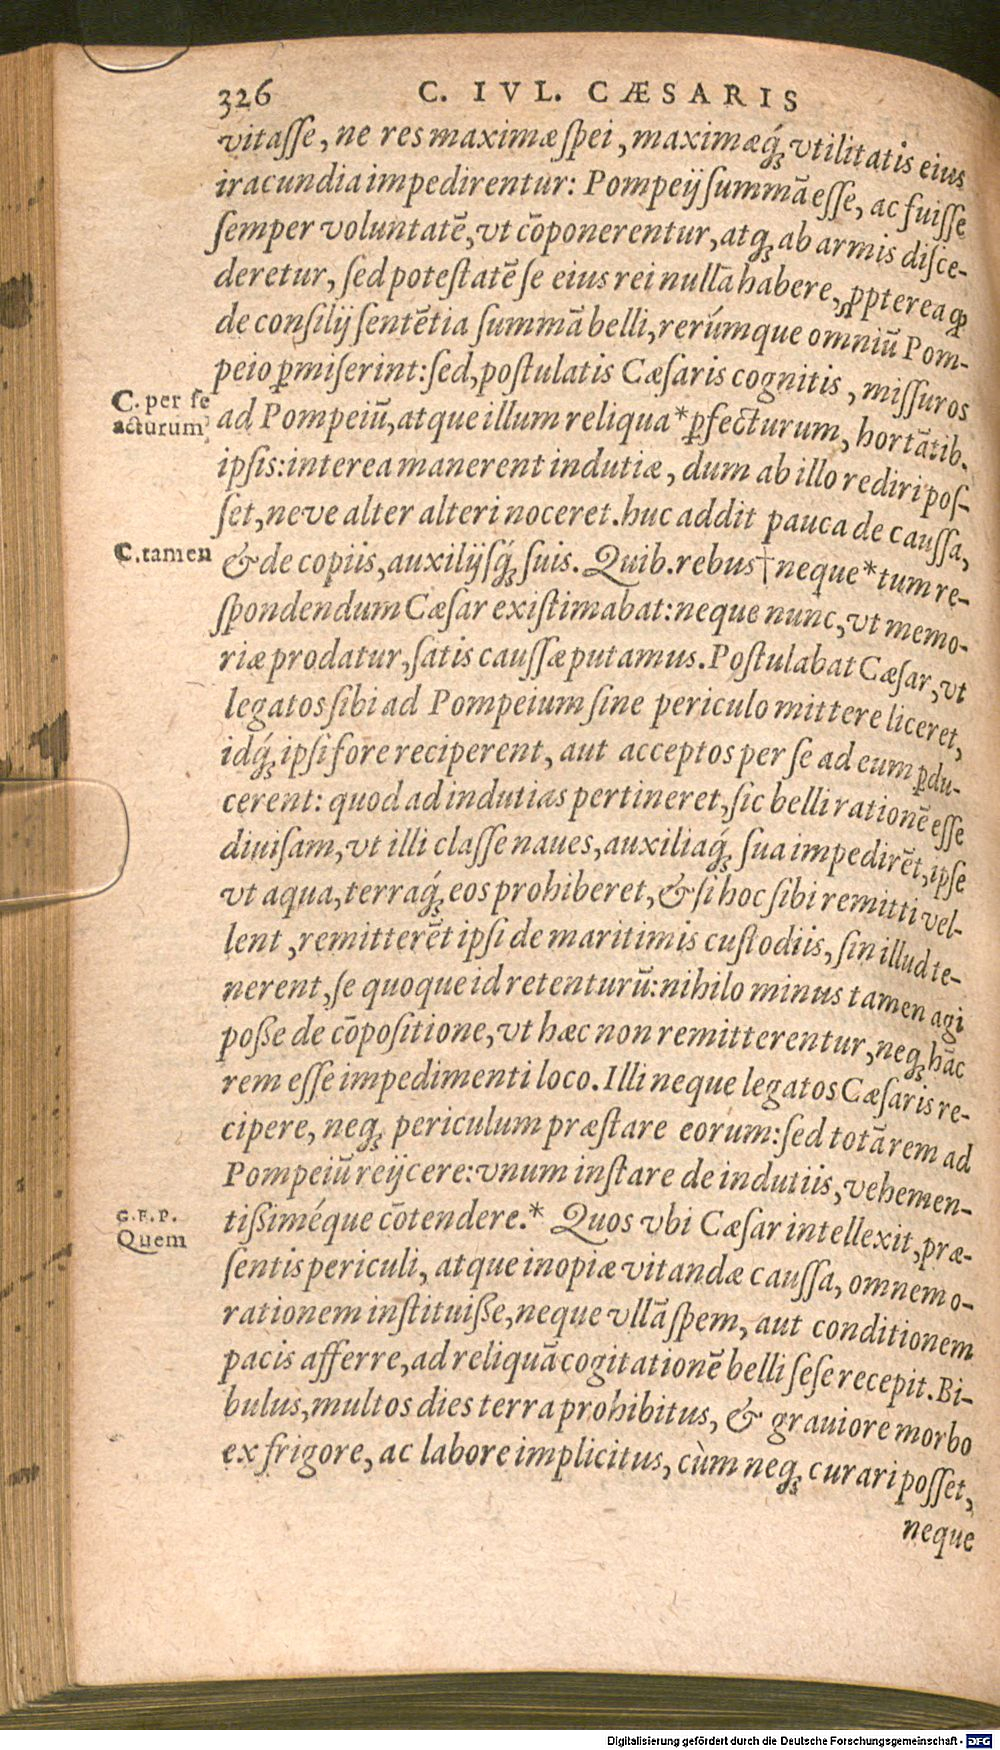 326 C. IVL. CÆSARIS
vitaſſe, ne res maximæ ſpei, maximæq́ꝫ vtilitatis eius
iracundia impedirentur: Pompeij ſummā eſſe, ac fuiſſe
ſemper voluntatē, vt cōponerentur, atqꝫ ab armis diſce-
deretur, ſed poteſtatē ſe eius rei nullā habere, ꝓpterea ꝙ
de conſilij ſentētia ſummā belli, rerúmque omniū Pom-
peio ꝑmiſerint: ſed, poſtulatis Cæſaris cognitis, miſſuros
C. per ſe
acturum
ad Pompeiū, atque illum reliqua * ꝑfecturum, hortātib.
ipſis: interea manerent indutiæ, dum ab illo rediri poſ-
ſet, neve alter alteri noceret. huc addit pauca de cauſſa,
C. tamen
& de copiis, auxilijſq́ꝫ ſuis. Quib. rebus † neque * tum re-
ſpondendum Cæſar exiſtimabat: neque nunc, vt memo-
riæ prodatur, ſatis cauſſæ putamus. Poſtulabat Cæſar, vt
legatos ſibi ad Pompeium ſine periculo mittere liceret,
idq́ꝫ ipſi fore reciperent, aut acceptos per ſe ad eum ꝑdu-
cerent: quod ad indutias pertineret, ſic belli rationē eſſe
diuiſam, vt illi claſſe naues, auxiliaq́ꝫ ſua impedirēt, ipſe
vt aqua, terraq́ꝫ eos prohiberet, & ſi hoc ſibi remitti vel-
lent, remitterēt ipſi de maritimis cuſtodiis, ſin illud te-
nerent, ſe quoque id retenturū: nihilo minus tamen agi
poſſe de cōpoſitione, vt hæc non remitterentur, neqꝫ hāc
rem eſſe impedimenti loco. Illi neque legatos Cæſaris re-
cipere, neqꝫ periculum præſtare eorum: ſed totā rem ad
Pompeiū reijcere: vnum inſtare de indutiis, vehemen-
G. F. P.
Quem
tiſſiméque cōtendere. * Quos vbi Cæſar intellexit, præ-
ſentis periculi, atque inopiæ vitandæ cauſſa, omnem o-
rationem inſtituiſſe, neque vllā ſpem, aut conditionem
pacis afferre, ad reliquā cogitationē belli ſeſe recepit. Bi-
bulus, multos dies terra prohibitus, & grauiore morbo
ex frigore, ac labore implicitus, cùm neqꝫ curari poſſet,
neque
Digitalisierung gefördert durch die Deutsche Forschungsgemeinschaft - DFG